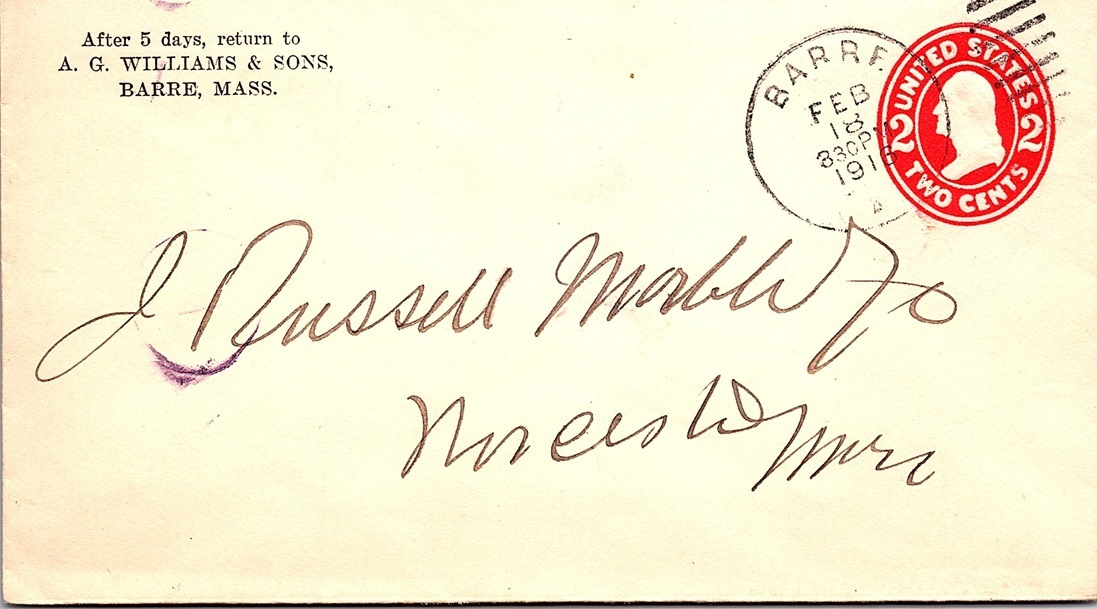 After 5 days, return to
A. G. WILLIAMS & SONS,
BARRE, MASS.
BARRE
FEB
18
830PM
1916
UNITED STATES
2 2
TWO CENTS
J Russell Marble & Co
Worcester Mass